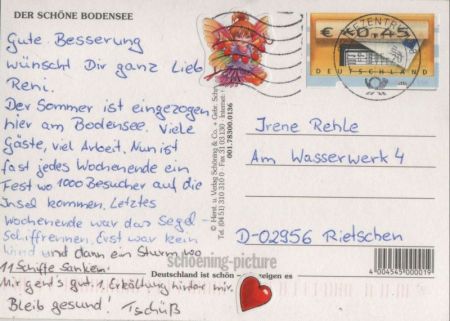 DER SCHÖNE BODENSEE
Gute Besserung
wünscht Dir ganz Lieb
Reni.
Der Sommer ist eingezogen
hier am Bodensee. Viele
Gäste, viel Arbeit. Nun ist
fast jedes Wochenende ein
Fest wo 1000 Besucher auf die
Insel kommen. Letztes
Wochenende war das Segel-
Schiffrennen. Erst war kein
Wind und dann ein Sturm wo
11 Schiffe sanken.
Mir geht's gut, 1. Erkältung hinter mir.
Bleib gesund! Tschüß
© Herst. u. Verlag Schöning & Co. + Gebr. Schm
Tel. (04 51) 310 310 0 · Fax 31 03 130 · Internet:
001.78300.0136
BRIEFZENTRUM
€ 0,45
DEUTSCHLAND
Irene Rehle
Am Wasserwerk 4
D-02956 Rietschen
schoening-picture
Deutschland ist schön - zeigen es
4 004545 000019